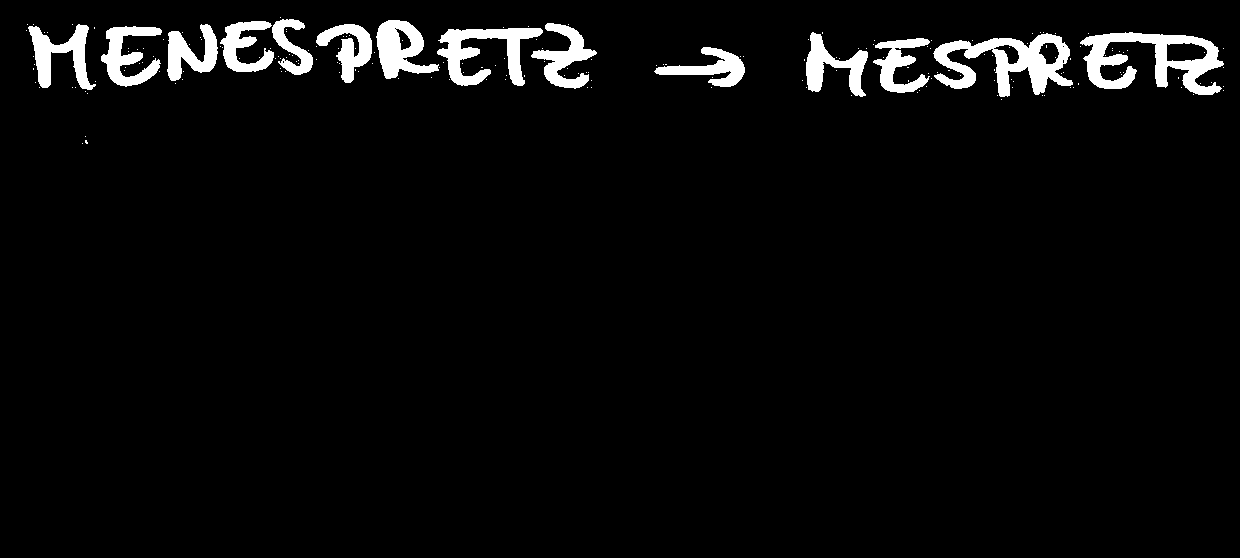 MENESPRETZ → MESPRETZ